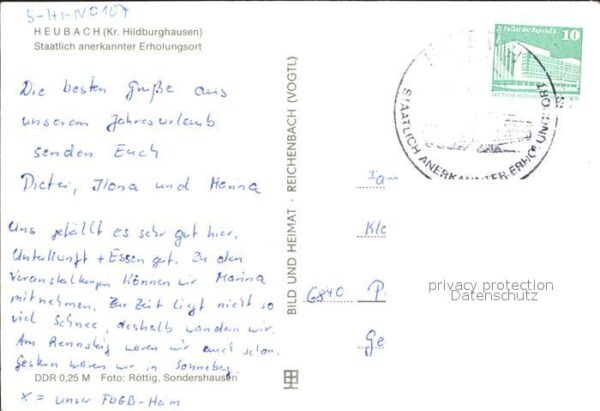 S-HI-N0107
HEUBACH (Kr. Hildburghausen)
Staatlich anerkannter Erholungsort
Die besten Grüße aus
unserem Jahresurlaub
senden Euch
Dieter, Ilona und Hanna
Uns gefällt es sehr gut hier,
Unterkunft + Essen gut. Zu den
Veranstaltungen können wir Hanna
mitnehmen. Zur Zeit liegt nicht so
viel Schnee, deshalb wandern wir.
Am Rennsteig waren wir auch schon.
Gestern waren wir in Sonneberg.
DDR 0,25 M Foto: Röttig, Sondershausen
X = unser FDGB-Heim
BILD UND HEIMAT · REICHENBACH (VOGTL)
Palast der Republik
10
STAATLICH ANERKANNTER ERHOLUNGSORT
Kle
6840 P
Ge
privacy protection
Datenschutz